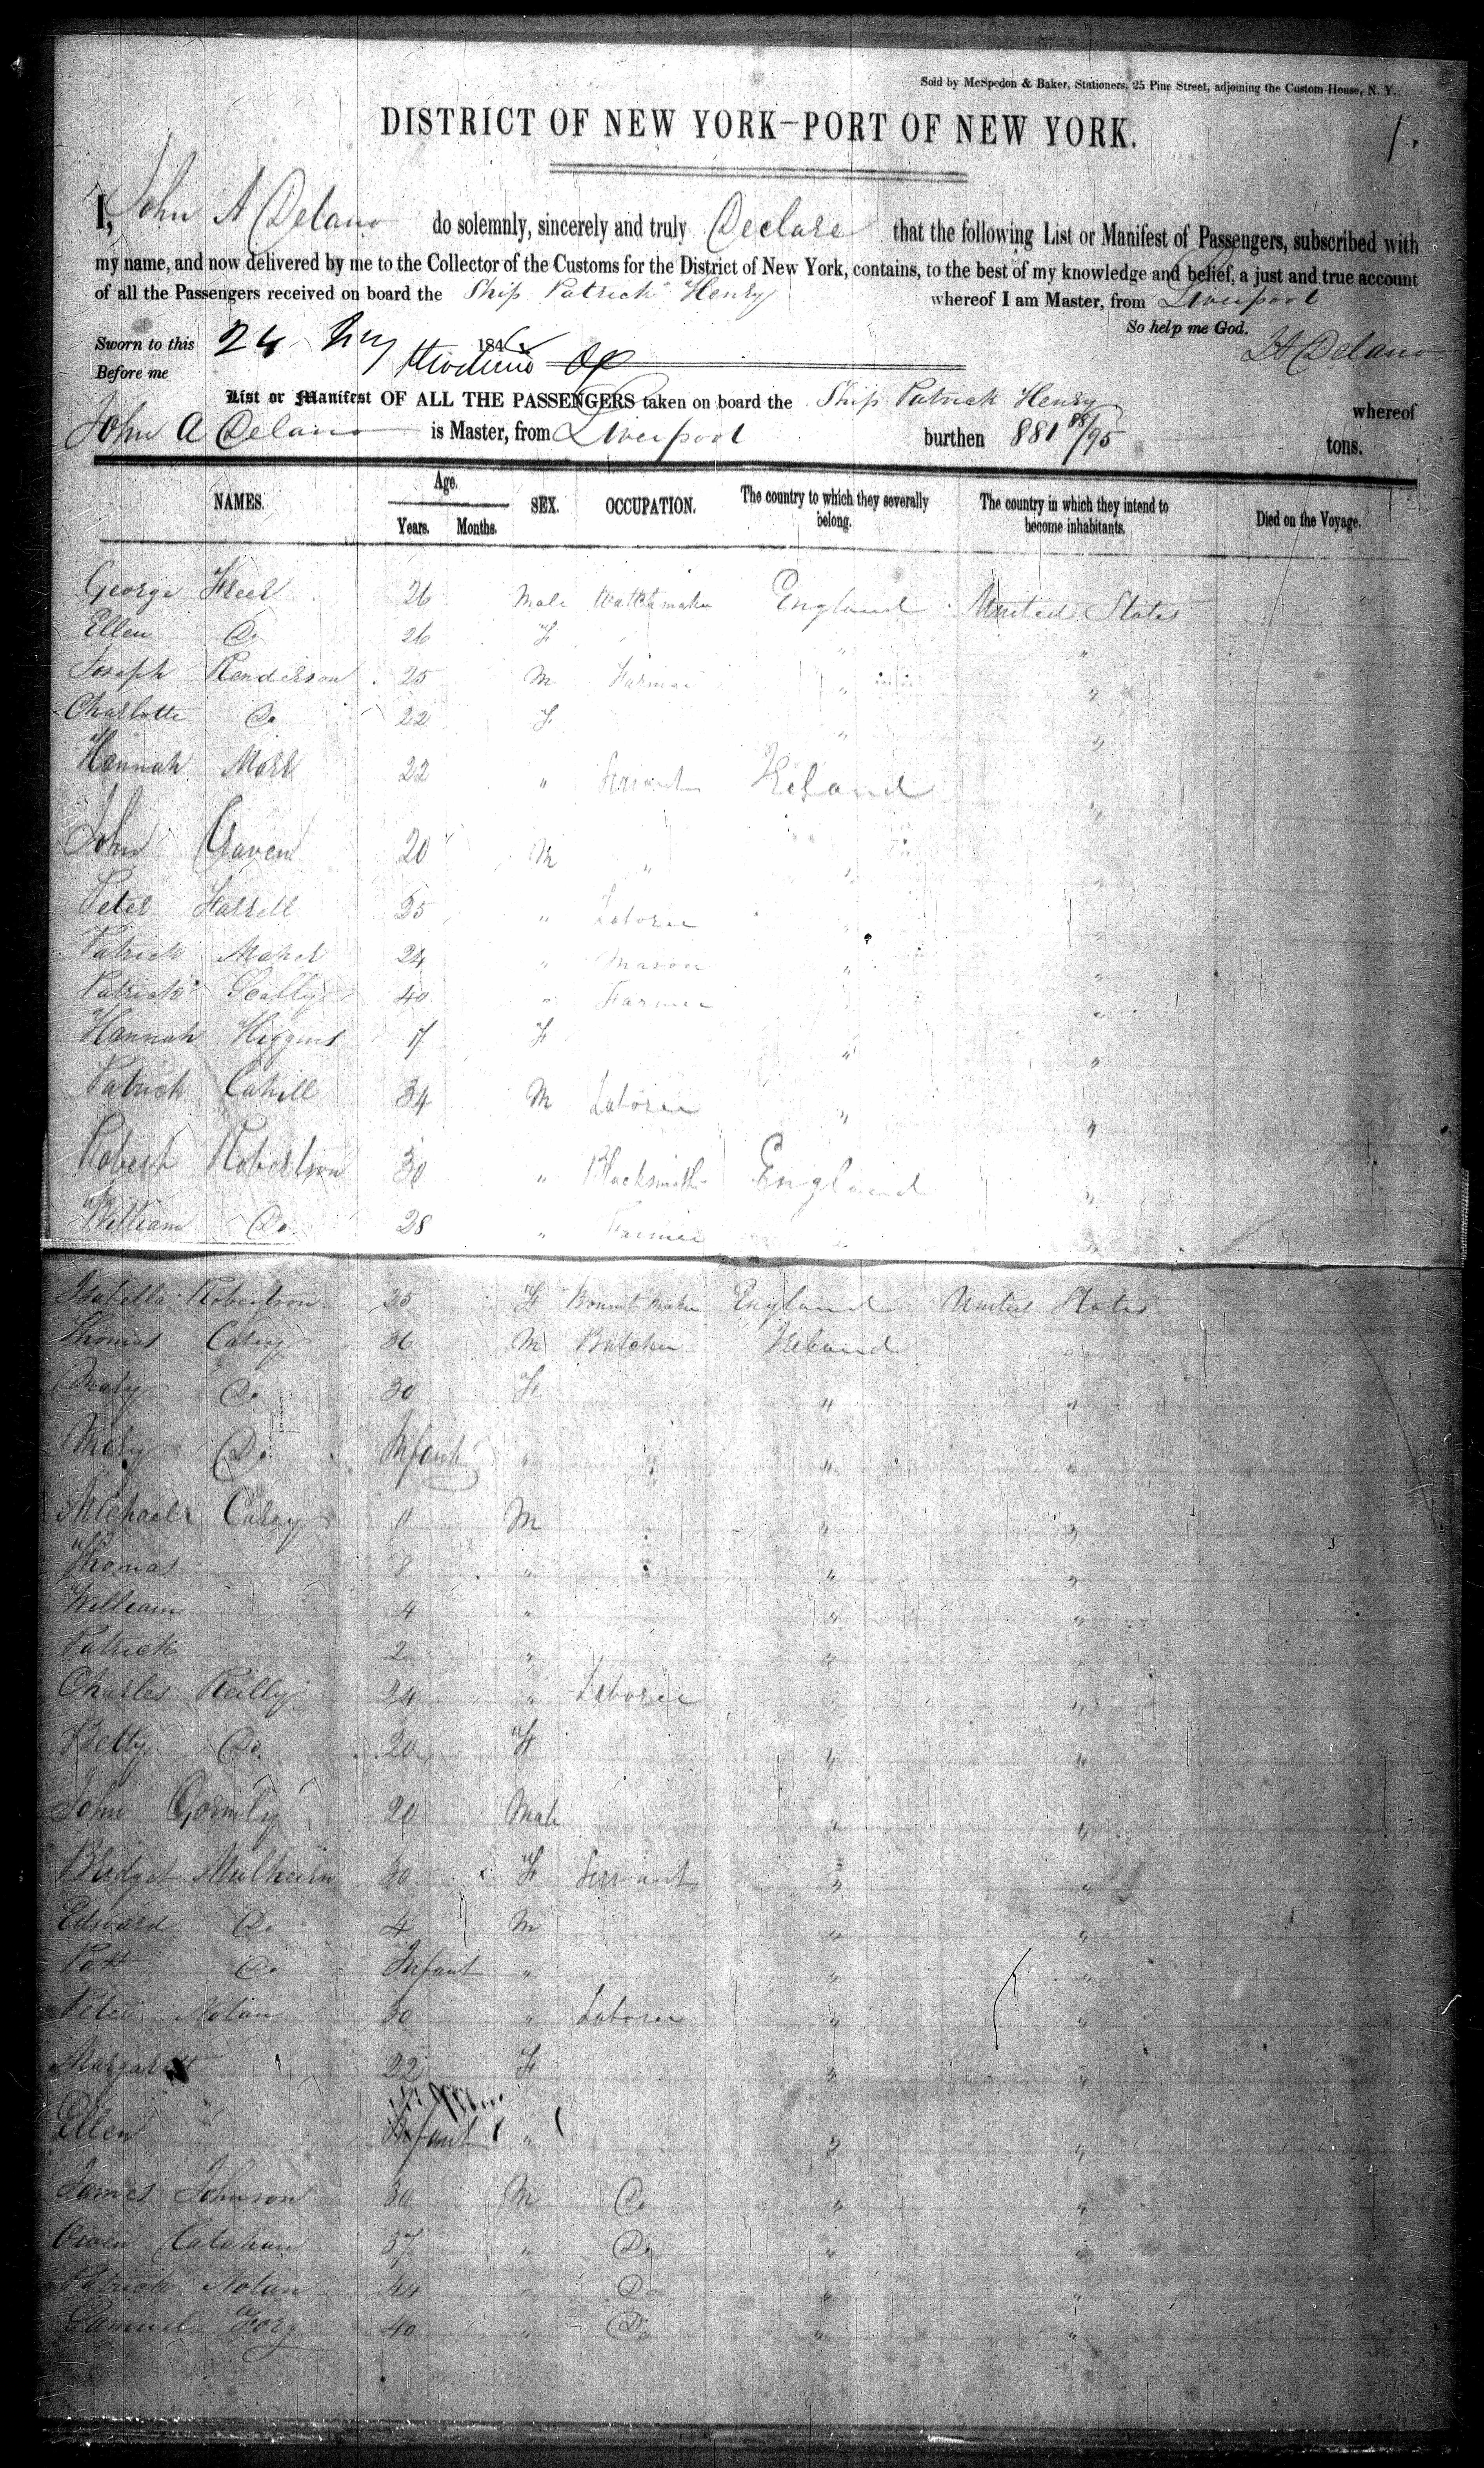 Sold by McSpedon & Baker, Stationers, 25 Pine Street, adjoining the Custom House, N. Y.
DISTRICT OF NEW YORK-PORT OF NEW YORK.
1.
I, John A Delano do solemnly, sincerely and truly Declare that the following List or Manifest of Passengers, subscribed with
my name, and now delivered by me to the Collector of the Customs for the District of New York, contains, to the best of my knowledge and belief, a just and true account
of all the Passengers received on board the Ship Patrick Henry whereof I am Master, from Liverpool
So help me God.
Sworn to this 24 184 JA Delano
Before me
List or Manifest OF ALL THE PASSENGERS taken on board the Ship Patrick Henry whereof
John A Delano is Master, from Liverpool burthen 881 88/95 tons.
NAMES. Age. Years. Months. SEX. OCCUPATION. The country to which they severally belong. The country in which they intend to become inhabitants. Died on the Voyage.
George Freer 26 Male Watchmaker England United States
Ellen Do 26 F " "
Joseph Henderson 25 M Farmer " "
Charlotte Do 22 F " "
Hannah 22 " Servant Ireland "
John Gaven 20 M " " "
Peter Farrell " Laborer " "
Patrick Maher 24 " Mason " "
Patrick Scally 40 " Farmer "
Hannah Higgins 17 F " "
Patrick Cahill 34 M Laborer " "
Robert Robertson 30 " Blacksmith England "
William Do 28 " Farmer " "
Isabella Robertson 25 F Bonnet Maker England United States
Thomas Carey 36 M Butcher Ireland "
Mary Do 30 F " "
Mary Do Infant " " " "
Michael Carey 11 M " "
Thomas 8 " " "
William 4 " " "
Patrick 2 " " "
Charles Reilly 24 " Laborer " "
Betty Do 20 F " "
John Gormly 20 Male " "
Bridget Mulhern 30 F Servant " "
Edward Do 4 M " "
Patt Do Infant " " "
Peter Nolan 30 " Laborer " "
Margarett 22 F " "
Ellen " Infant " " "
James Johnson 30 M Do " "
Owen Calahan 37 " Do " "
Patrick Nolan 44 " Do " "
Samuel 40 " Do " "